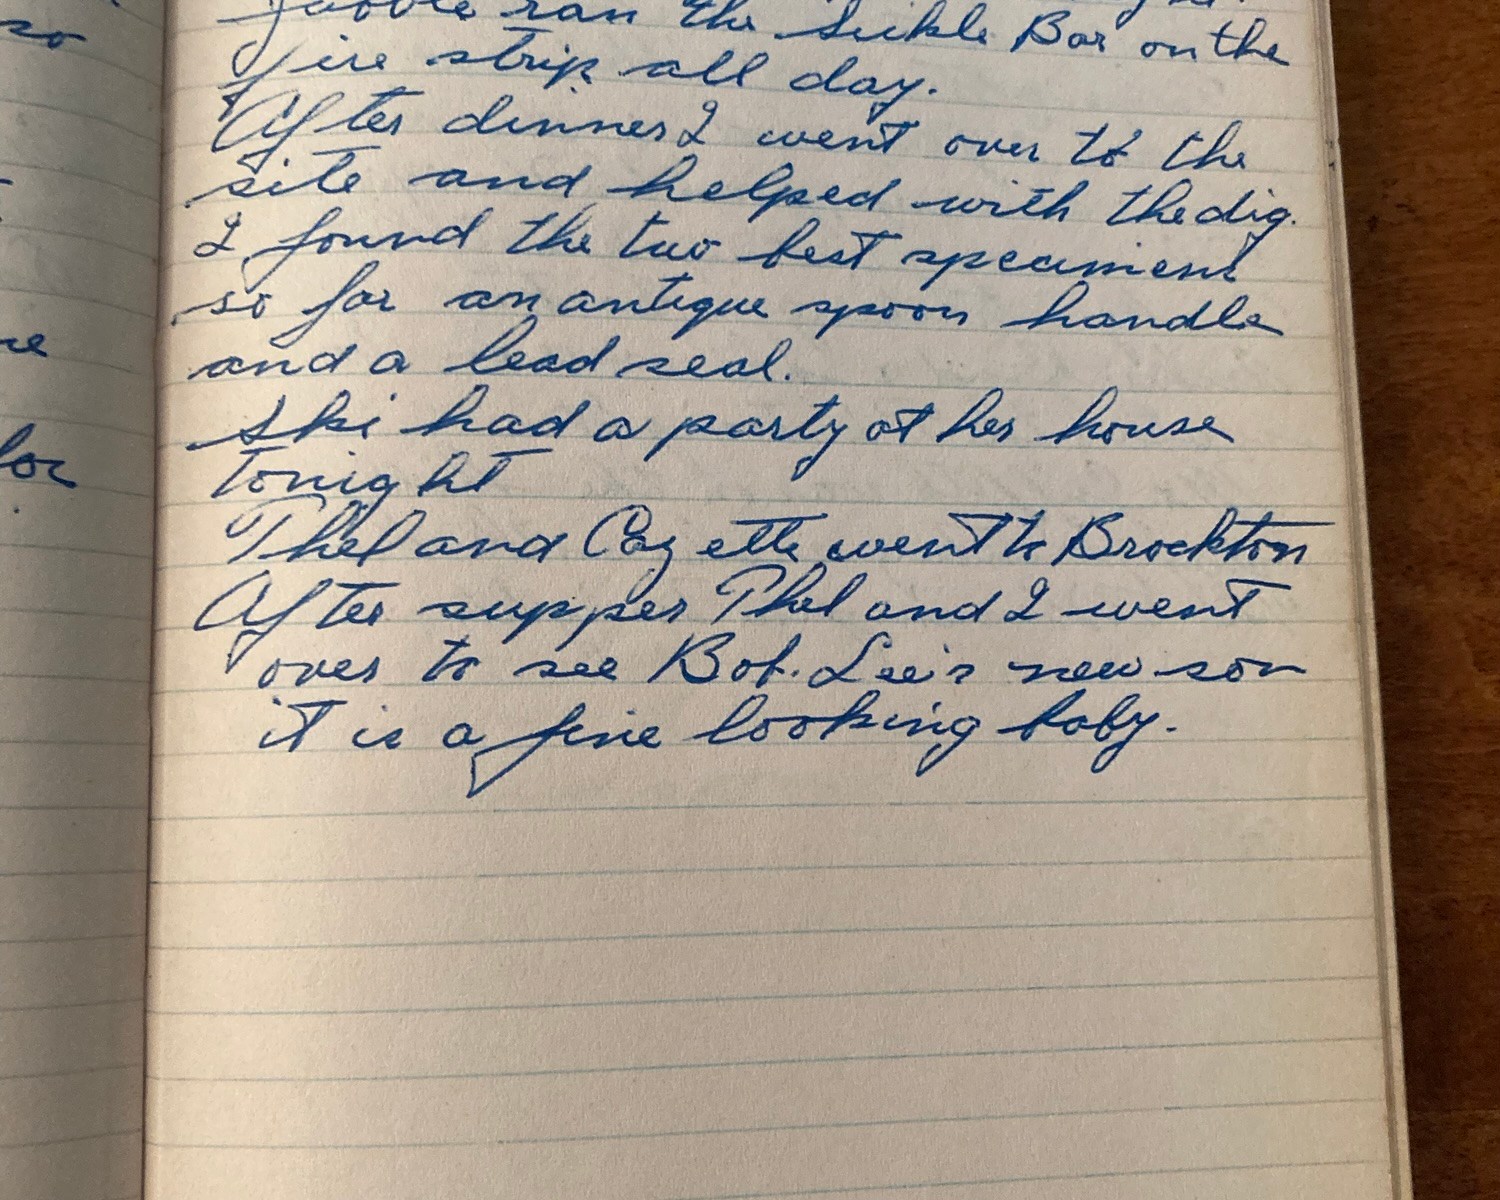 so
ran the Sickle Bar on the
fire strip all day.
After dinner I went over to the
site and helped with the dig.
I found the two best speciment
so far an antique spoon handle
and a lead seal.
Ski had a party at her house
tonight
Thel and went to Brockton
After supper Thel and I went
over to see Bob. Lee's new son
it is a fine looking baby.